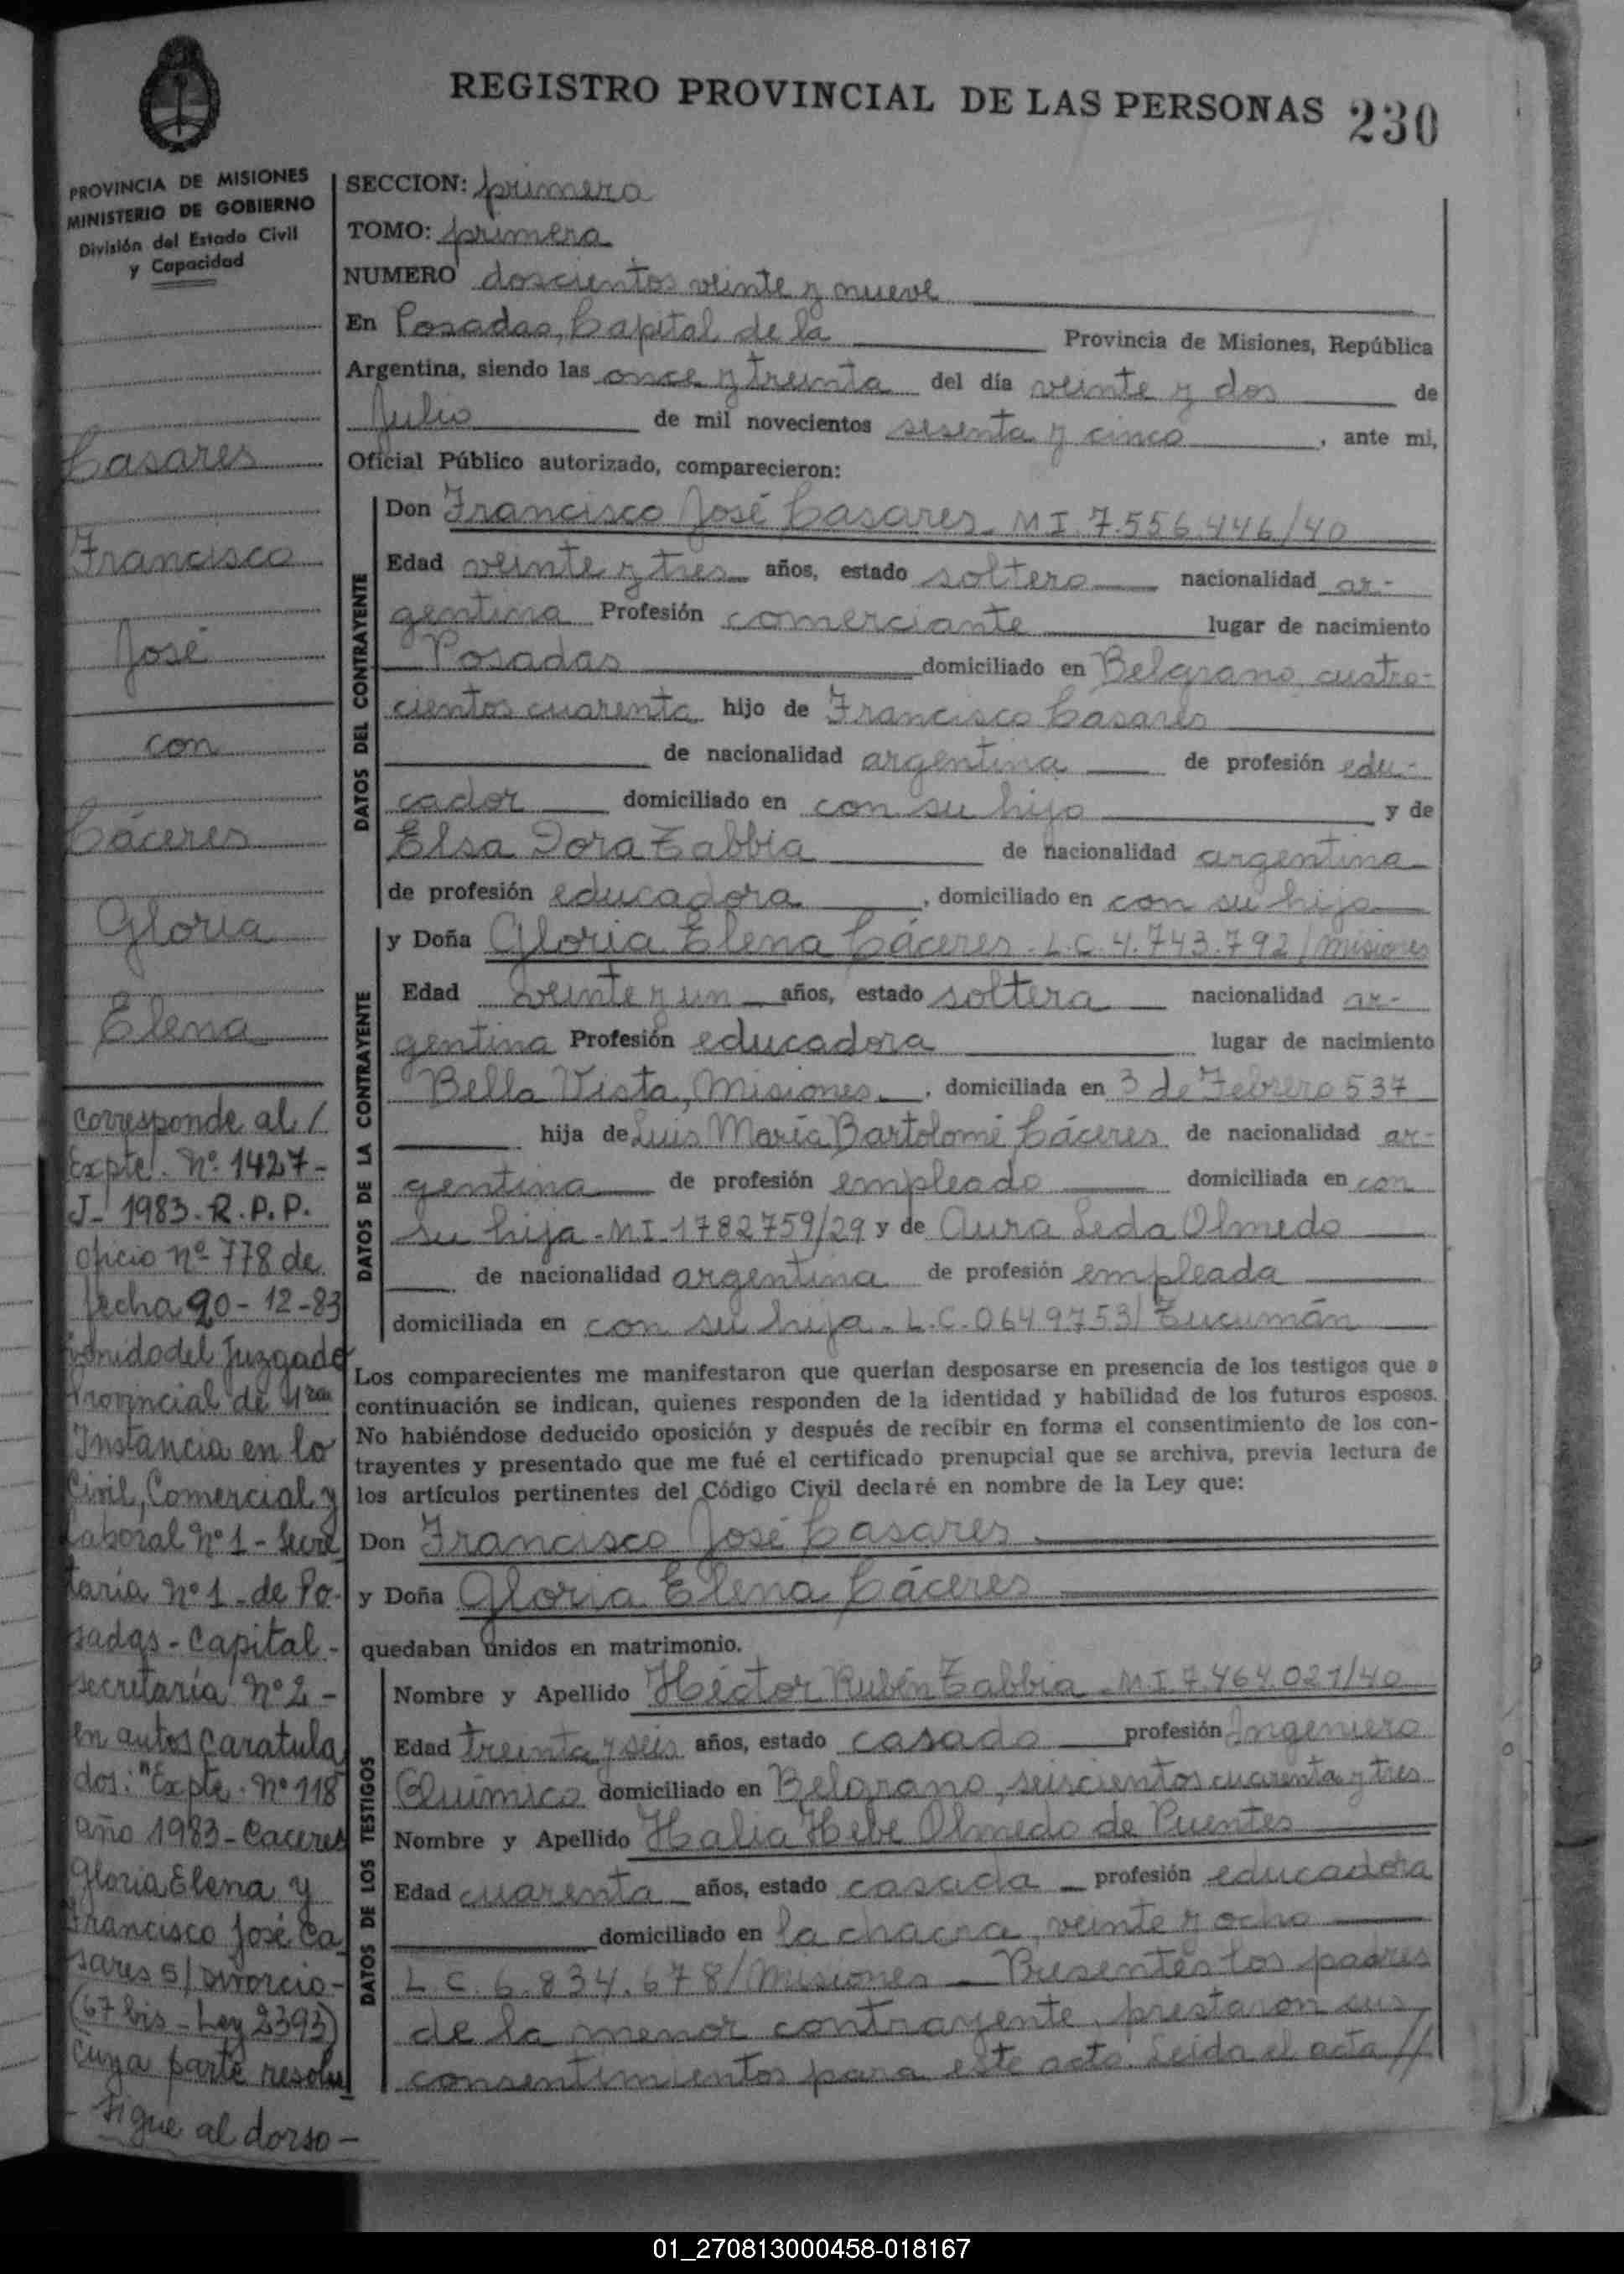 REGISTRO PROVINCIAL DE LAS PERSONAS 230
PROVINCIA DE MISIONES
MINISTERIO DE GOBIERNO
División del Estado Civil
y Capacidad
Casares
Francisco
José
con
Cáceres
Gloria
Elena
corresponde al /
Expte. Nº 1427-
J- 1983. R.P.P.
oficio nº 778 de
fecha 20-12-83
venido del Juzgado
Provincial de 1ra
Instancia en lo
Civil, Comercial y
Laboral Nº 1 - Secre
taría Nº 1 - de Po-
sadas - Capital -
secretaría Nº 2 -
en autos caratula
dos: "Expte. Nº 118
año 1983 - Caceres
Gloria Elena y
Francisco José Ca
sares s/ Divorcio -
(67 bis - Ley 2393)
cuya parte resolu
- sigue al dorso -
SECCION: primera
TOMO: primera
NUMERO doscientos veinte y nueve
En Posadas, Capital de la Provincia de Misiones, República
Argentina, siendo las once y treinta del día veinte y dos de
Julio de mil novecientos sesenta y cinco, ante mi,
Oficial Público autorizado, comparecieron:
DATOS DEL CONTRAYENTE
Don Francisco José Casares. M I. 7.556.446/40
Edad veinte y tres años, estado soltero nacionalidad ar-
gentina Profesión comerciante lugar de nacimiento
Posadas domiciliado en Belgrano cuatro-
cientos cuarenta hijo de Francisco Casares
de nacionalidad argentina de profesión edu-
cador domiciliado en con su hijo y de
Elsa Dora Tabbia de nacionalidad argentina
de profesión educadora, domiciliado en con su hijo
DATOS DE LA CONTRAYENTE
y Doña Gloria Elena Cáceres. L.C. 4.743.792/Misiones
Edad veinte y un años, estado soltera nacionalidad ar-
gentina Profesión educadora lugar de nacimiento
Bella Vista, Misiones, domiciliada en 3 de Febrero 537
hija de Luis María Bartolomé Cáceres de nacionalidad ar-
gentina de profesión empleado domiciliada en con
su hija - M.I. 1782759/29 y de Aura Leda Olmedo
de nacionalidad argentina de profesión empleada
domiciliada en con su hija. L.C. 0649753/ Tucumán
Los comparecientes me manifestaron que querían desposarse en presencia de los testigos que a
continuación se indican, quienes responden de la identidad y habilidad de los futuros esposos.
No habiéndose deducido oposición y después de recibir en forma el consentimiento de los con-
trayentes y presentado que me fué el certificado prenupcial que se archiva, previa lectura de
los artículos pertinentes del Código Civil declaré en nombre de la Ley que:
Don Francisco José Casares
y Doña Gloria Elena Cáceres
quedaban unidos en matrimonio.
DATOS DE LOS TESTIGOS
Nombre y Apellido Héctor Rubén Tabbia - M.I. 7.464.021/40
Edad treinta y seis años, estado casado profesión Ingeniero
Químico domiciliado en Belgrano, seiscientos cuarenta y tres
Nombre y Apellido Halia Hebe Olmedo de Puentes
Edad cuarenta años, estado casada profesión educadora
domiciliado en la chacra, veinte y ocho
L C. 6.834.678/Misiones - Presentes los padres
de la menor contrayente, prestaron sus
consentimientos para este acto. Leída el acta //
01_270813000458-018167